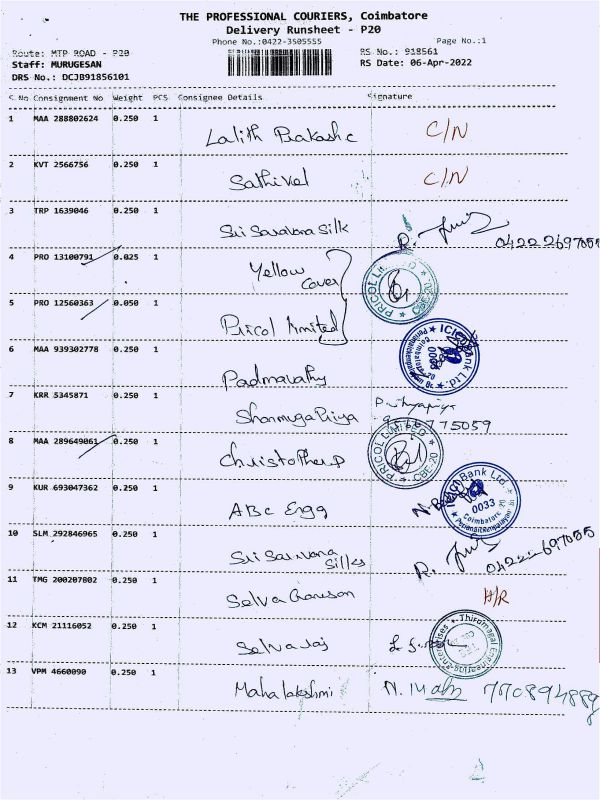 THE PROFESSIONAL COURIERS, Coimbatore
Delivery Runsheet - P20
Phone No.:0422-3505555 Page No.:1
Route: MTP ROAD - P20 RS No.: 918561
Staff: MURUGESAN RS Date: 06-Apr-2022
DRS No.: DCJB91856101
S No Consignment No Weight PCS Consignee Details Signature
1 MAA 288802624 0.250 1 Lalith Prakash c C/N
2 KVT 2566756 0.250 1 Sathivel C/N
3 TRP 1639046 0.250 1 Sri Saravana Silk R. 0422 2697055
4 PRO 13100791 0.025 1 Yellow cover PRICOL LIMITED CBE-20
5 PRO 12560363 0.050 1 Pricol limited
6 MAA 939302778 0.250 1 Padmavathy ICICI Bank Ltd.
7 KRR 5345871 0.250 1 Shanmuga Priya 775059
8 MAA 289649061 0.250 1 Christopher P PRICOL LIMITED CBE-20
9 KUR 693047362 0.250 1 ABC Engg ICICI Bank Ltd 0033 Coimbatore
10 SLM 292846965 0.250 1 Sri Saravana Silks R. 0422-2697055
11 TMG 200207802 0.250 1 Selva Ganesan H/R
12 KCM 21116052 0.250 1 Selvaraj Thirumagal Engineering Enterprises
13 VPM 4660090 0.250 1 Mahalakshmi N. Mah 7708948889